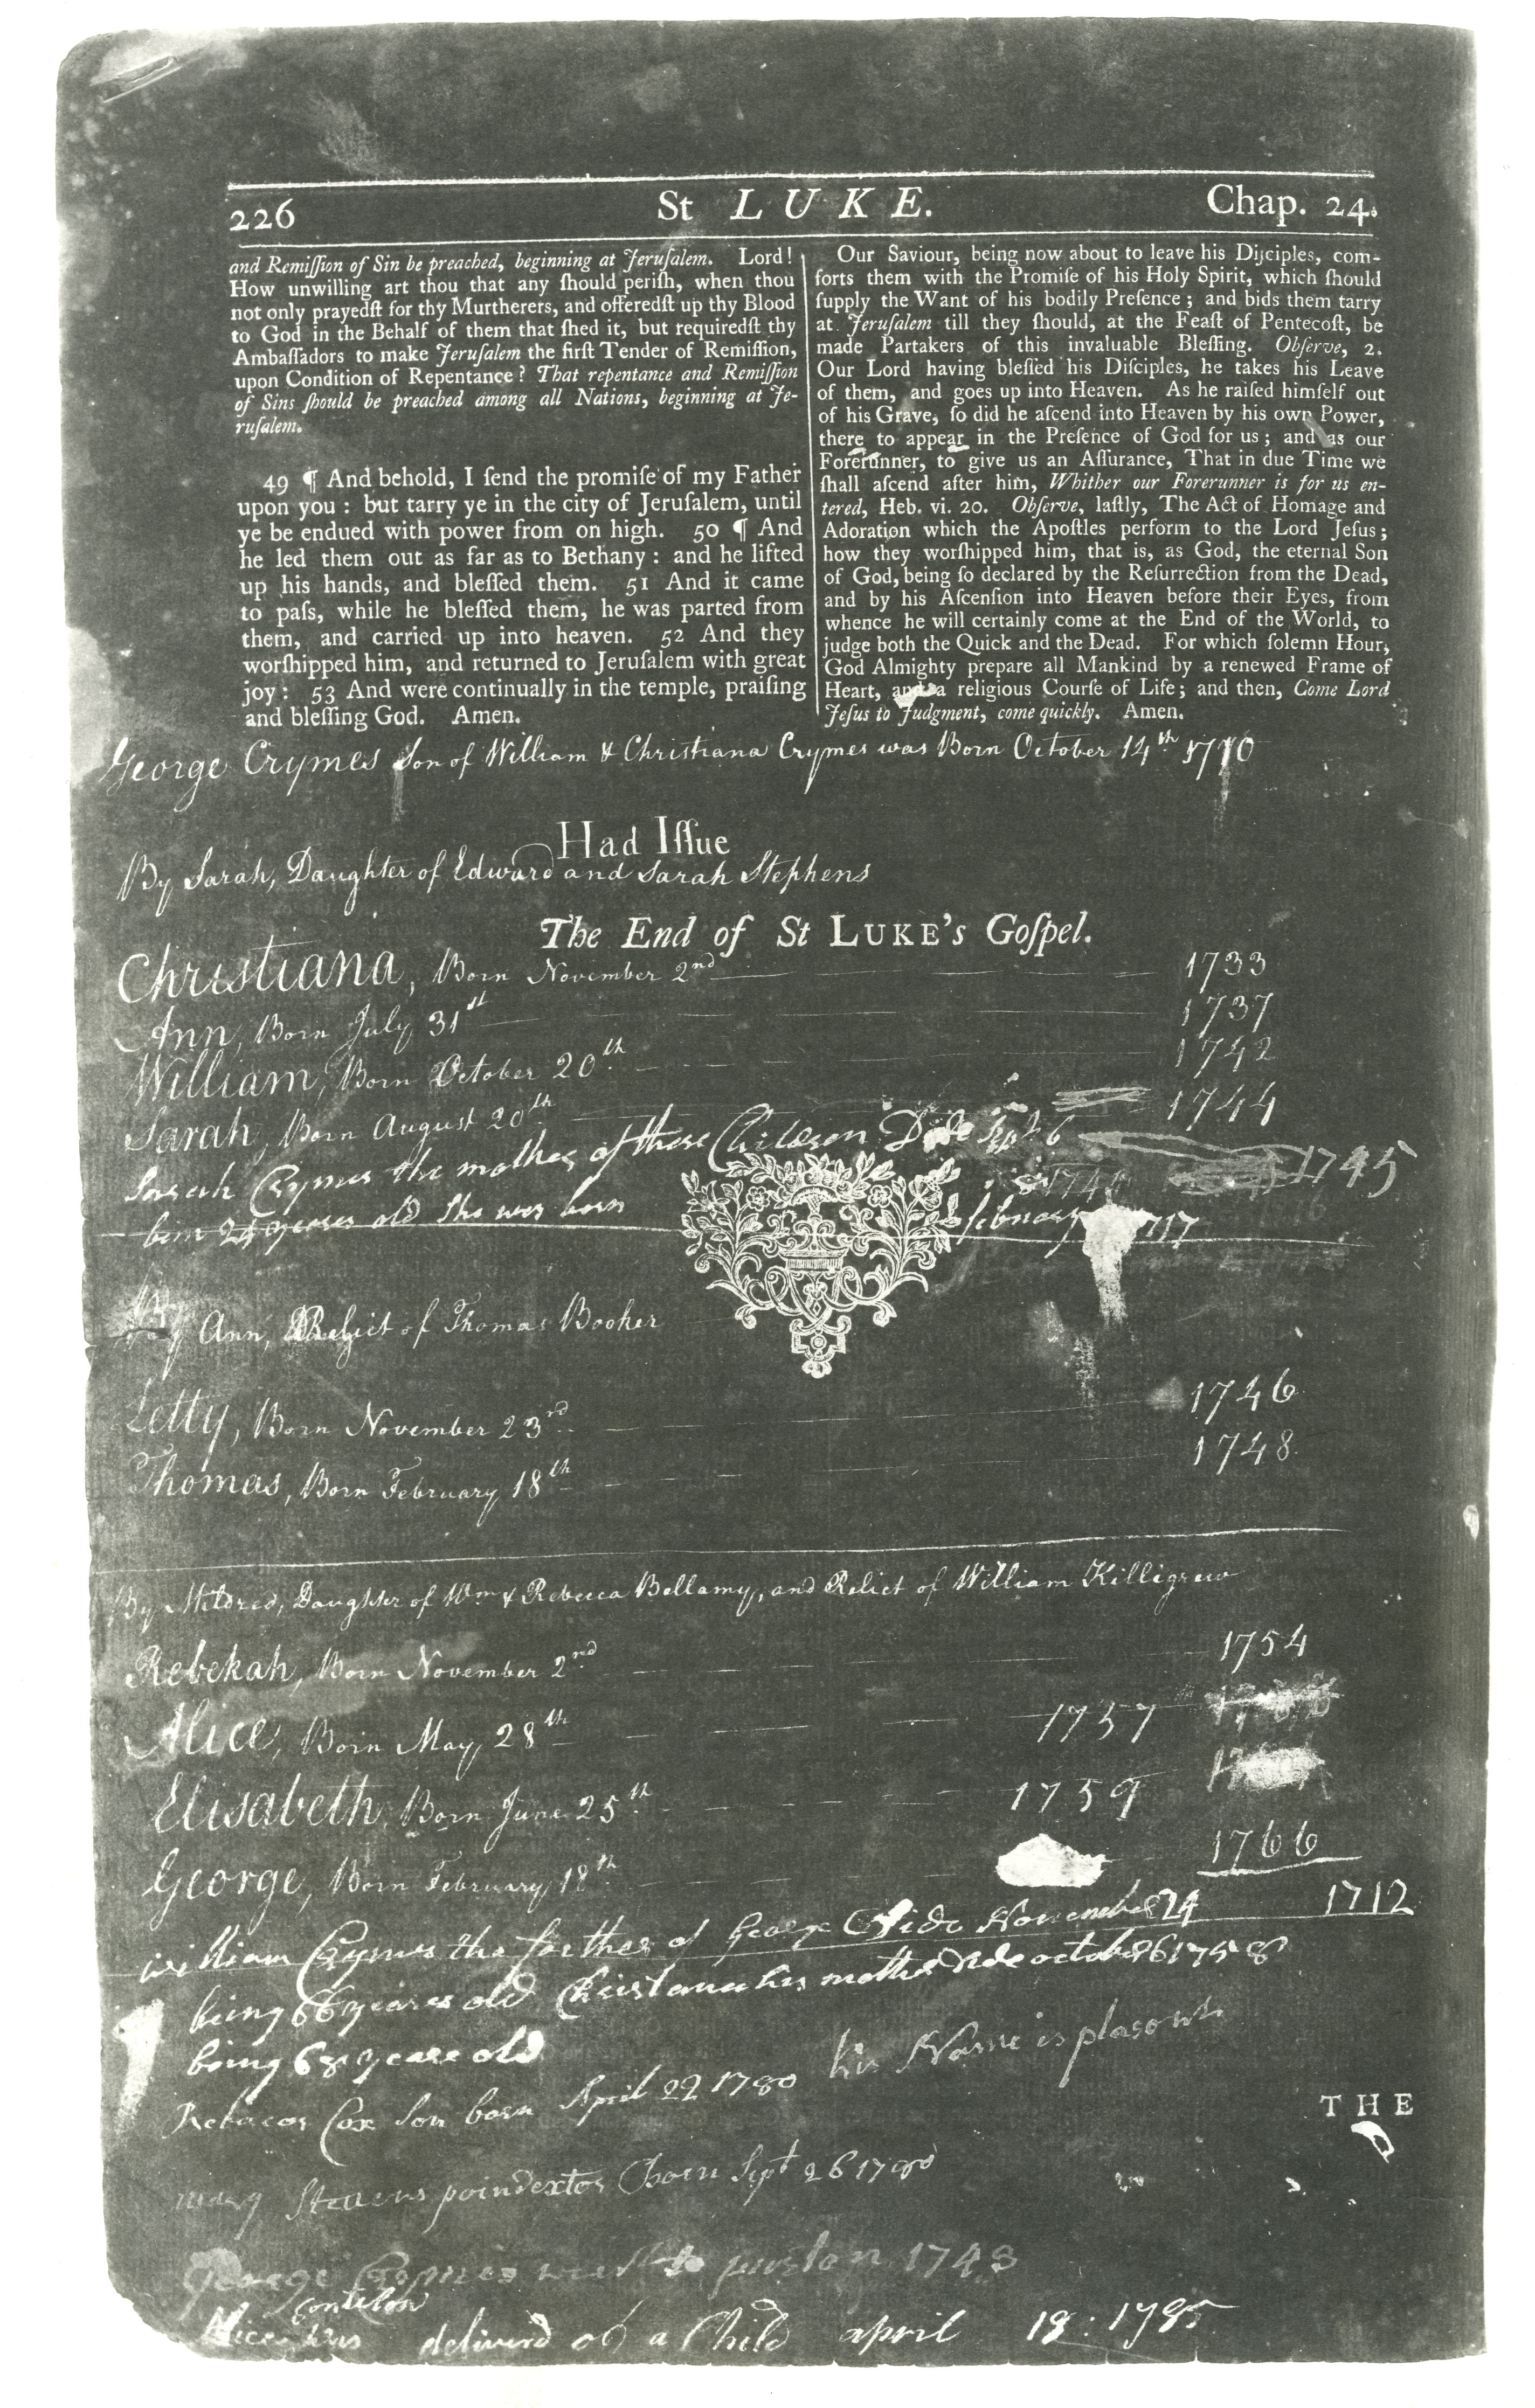 226 St LUKE. Chap. 24.
and Remiſſion of Sin be preached, beginning at Jeruſalem. Lord!
How unwilling art thou that any ſhould periſh, when thou
not only prayedſt for thy Murtherers, and offeredſt up thy Blood
to God in the Behalf of them that ſhed it, but requiredſt thy
Ambaſſadors to make Jeruſalem the firſt Tender of Remiſſion,
upon Condition of Repentance? That repentance and Remiſſion
of Sins ſhould be preached among all Nations, beginning at Je-
ruſalem.
49 ¶ And behold, I ſend the promiſe of my Father
upon you: but tarry ye in the city of Jeruſalem, until
ye be endued with power from on high. 50 ¶ And
he led them out as far as to Bethany: and he lifted
up his hands, and bleſſed them. 51 And it came
to paſs, while he bleſſed them, he was parted from
them, and carried up into heaven. 52 And they
worſhipped him, and returned to Jeruſalem with great
joy: 53 And were continually in the temple, praiſing
and bleſſing God. Amen.
Our Saviour, being now about to leave his Diſciples, com-
forts them with the Promiſe of his Holy Spirit, which ſhould
ſupply the Want of his bodily Preſence; and bids them tarry
at Jeruſalem till they ſhould, at the Feaſt of Pentecoſt, be
made Partakers of this invaluable Bleſſing. Obſerve, 2.
Our Lord having bleſſed his Diſciples, he takes his Leave
of them, and goes up into Heaven. As he raiſed himſelf out
of his Grave, ſo did he aſcend into Heaven by his own Power,
there to appear in the Preſence of God for us; and as our
Forerunner, to give us an Aſſurance, That in due Time we
ſhall aſcend after him, Whither our Forerunner is for us en-
tered, Heb. vi. 20. Obſerve, laſtly, The Act of Homage and
Adoration which the Apoſtles perform to the Lord Jeſus;
how they worſhipped him, that is, as God, the eternal Son
of God, being ſo declared by the Reſurrection from the Dead,
and by his Aſcenſion into Heaven before their Eyes, from
whence he will certainly come at the End of the World, to
judge both the Quick and the Dead. For which ſolemn Hour,
God Almighty prepare all Mankind by a renewed Frame of
Heart, and a religious Courſe of Life; and then, Come Lord
Jeſus to Judgment, come quickly. Amen.
George Crymes Son of William & Christiana Crymes was Born October 14th 1710
Had Iſſue
By Sarah, Daughter of Edward and Sarah Stephens
The End of St LUKE's Goſpel.
Christiana, Born November 2nd 1733
Ann, Born July 31st 1737
William, Born October 20th 1742
Sarah, Born August 20th 1744
Sarah Crymes the mother of these Children Dide Sept 6 1745
bein years old She was born february 1717
By Ann, Relict of Thomas Booker
Letty, Born November 23rd 1746
Thomas, Born February 18th 1748
By Mildred, Daughter of Wm & Rebecca Bellamy, and Relict of William Killigrew
Rebekah, Born November 2nd 1754
Alice, Born May 28th 1757
Elisabeth, Born June 25th 1759
George, Born February 18th 1766
william Crymes the farther of George Dide November 24 1712
being 66 yeares old Christana his mother dide october 6 1758
being 68 yeare old
Cox son born April 22 1780 his Name is
mary Stevens poindexter Born Sept 26 1780
George Crymes went to 1743
Alice was delivered of a Child april 18: 1785